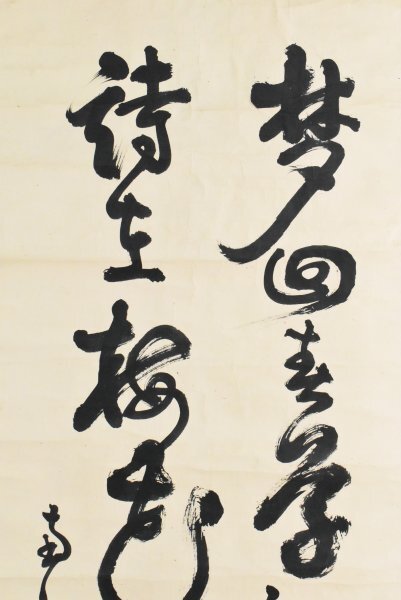 梦回春草
詩在梅花